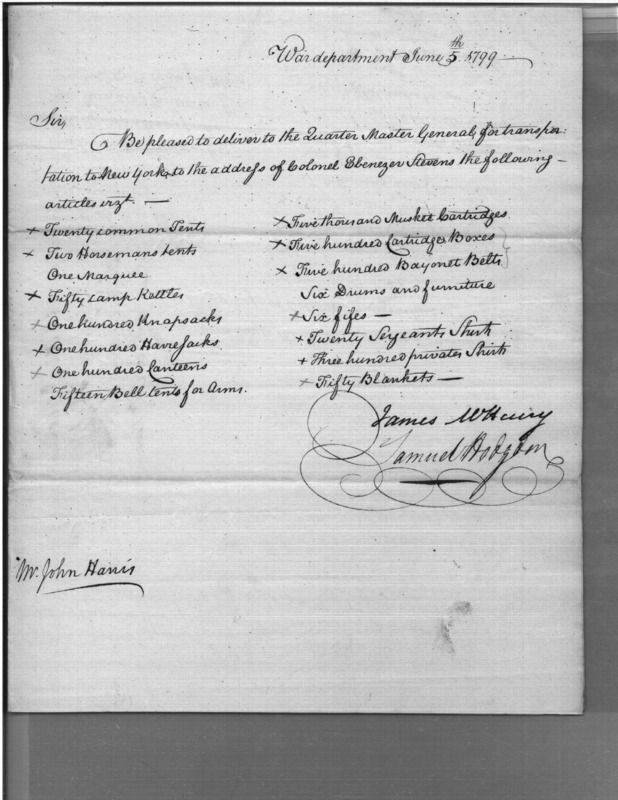 War department June 5th 1799
Sir,
Be pleased to deliver to the Quarter Master General, for transpor:
tation to New York, to the address of Colonel Ebenezer Stevens the following
articles vizt —
x Twenty common Tents
x Two Horsemans tents
One Marquee
x Fifty Camp Kettles
x One hundred Knapsacks
x One hundred Haversacks
x One hundred Canteens
Fifteen Bell tents for Arms.
x Five thousand Musket Cartridges
x Five hundred Cartridge Boxes
x Five hundred Bayonet Belts
Six Drums and furniture
x Six fifes —
x Twenty Sergeants Shirts
x Three hundred privates Shirts
x Fifty Blankets —
James McHenry
Samuel Hodgdon
Mr. John Harris